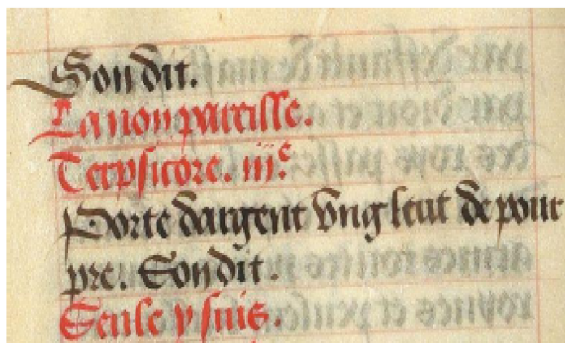 Son dit.
La non pareille.
Terpsicore. iij.e
Porte dargent vng leut de pour
pre. Son dit.
Seule y suis.